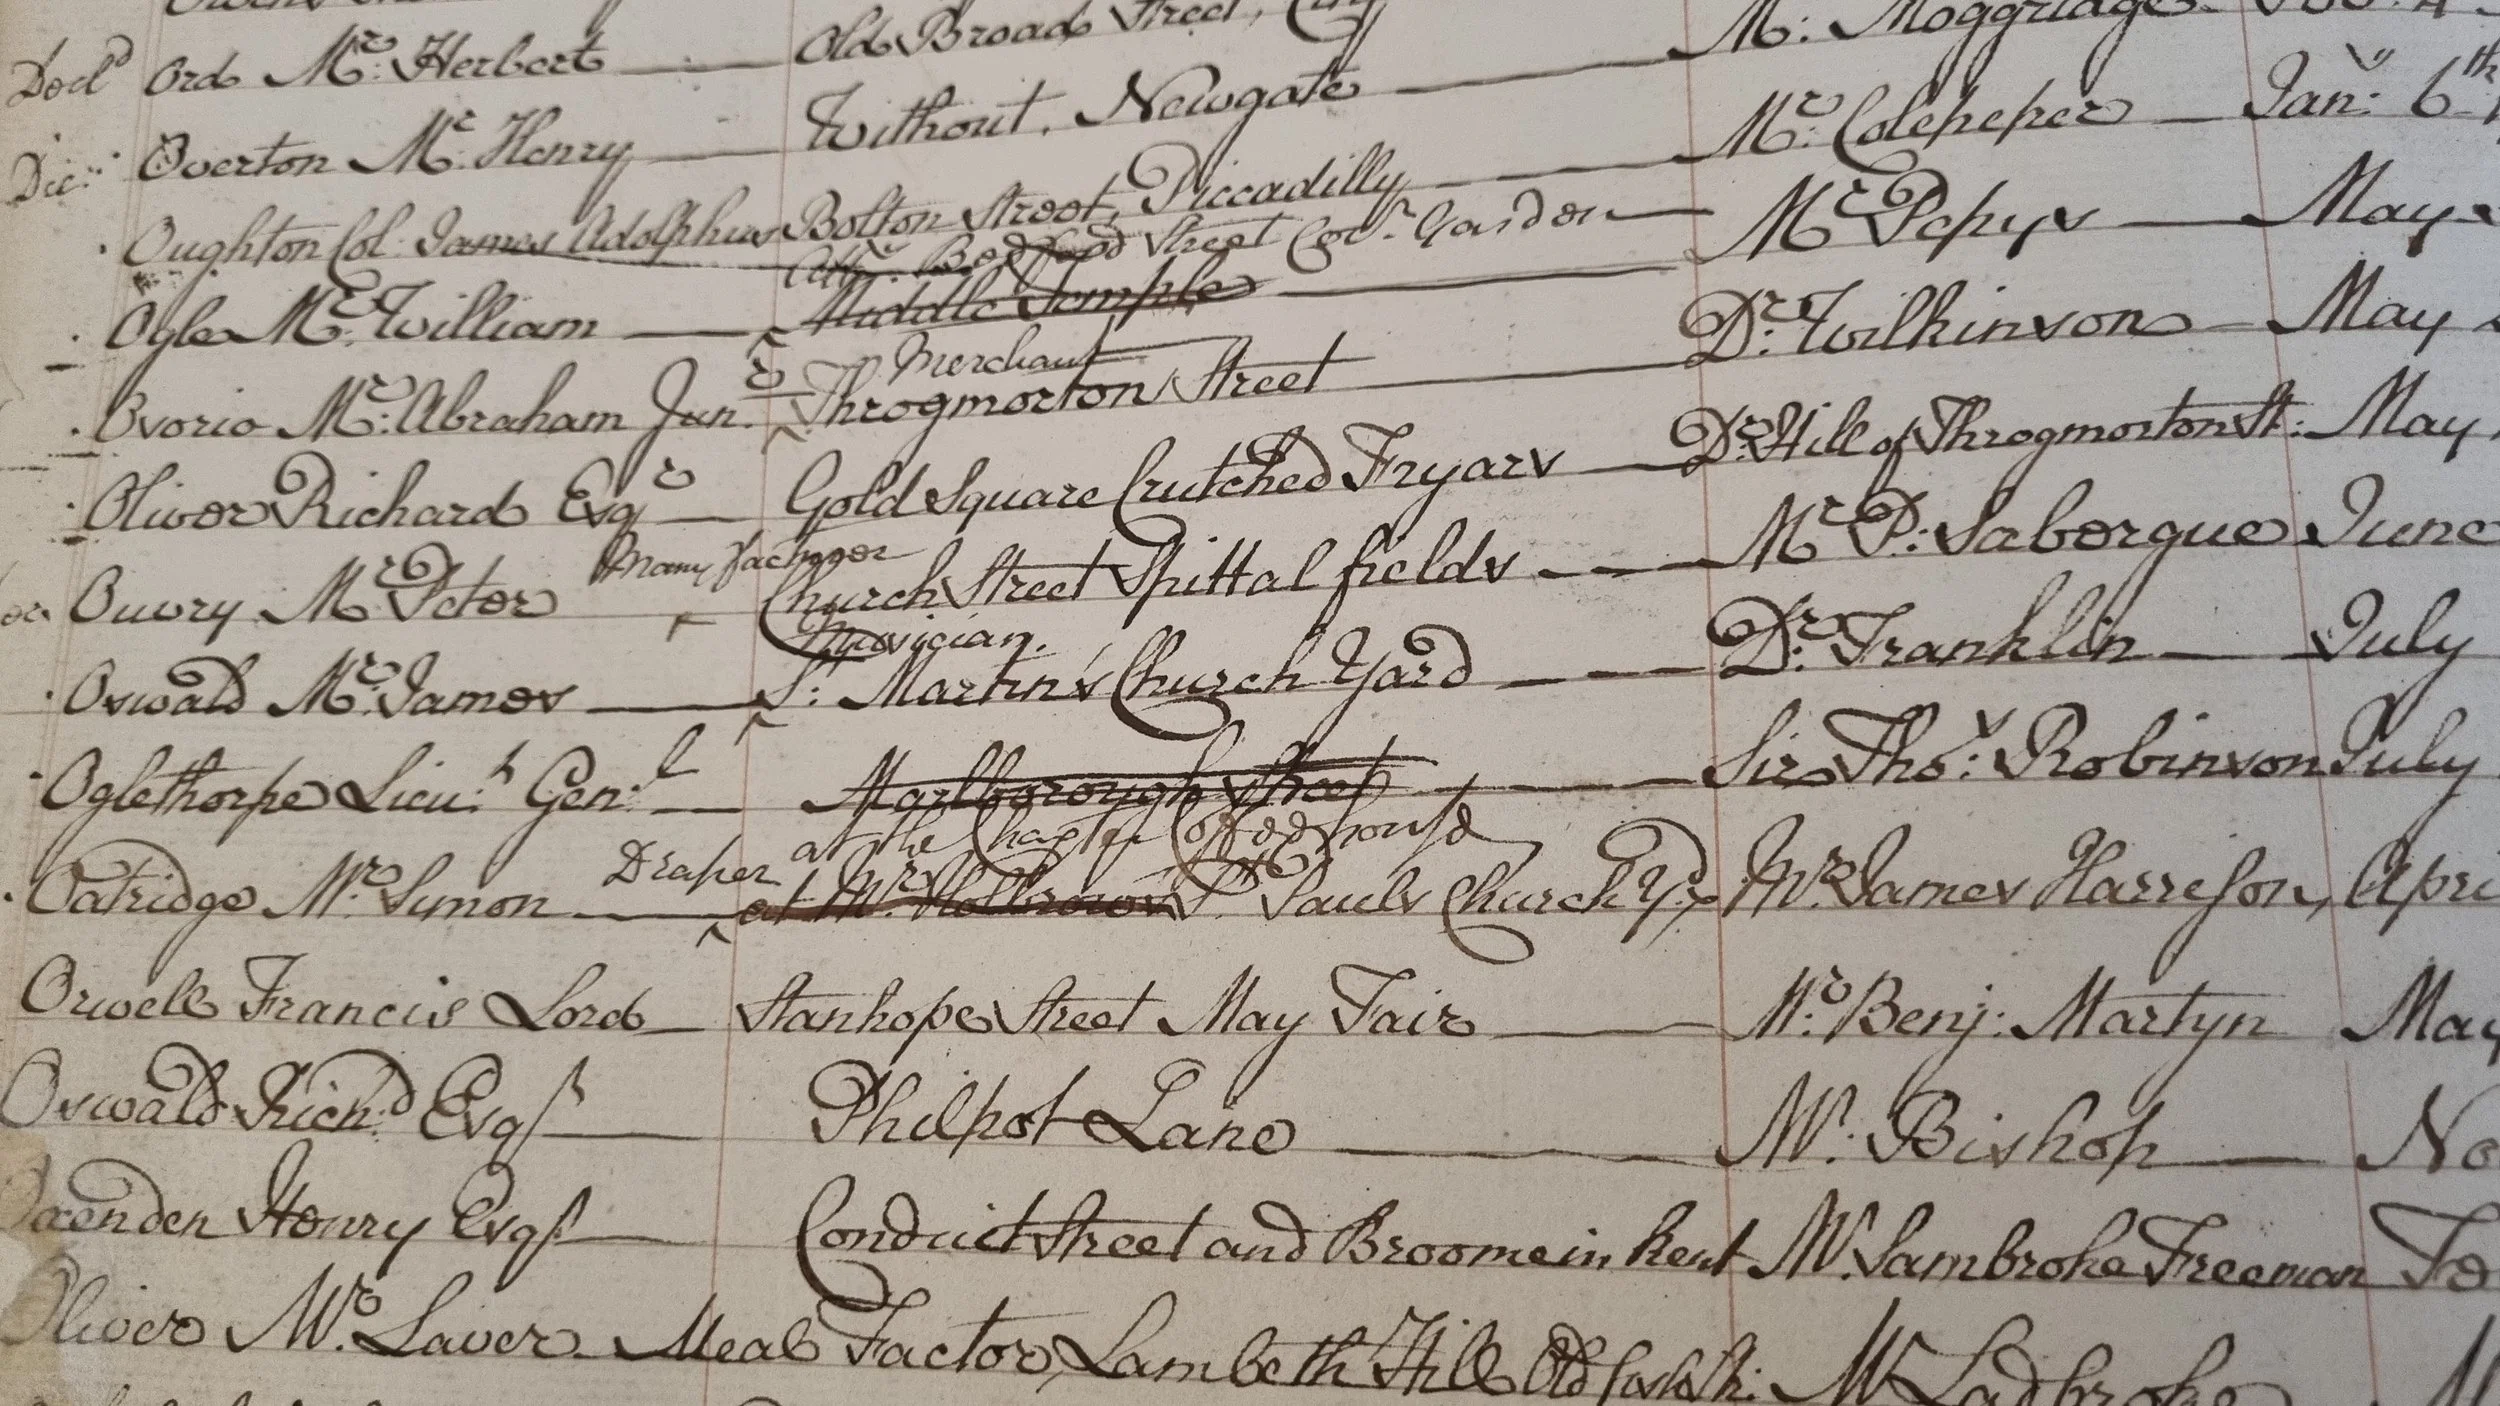 Decd Ord Mr. Herbert Old Broad Street, City M: Moggridge
Dec: Overton Mr. Henry Without, Newgate Mr: Colepeper Jany: 6th
Oughton Col: James Adolphus Bolton Street, Piccadilly Mr Pepys May
Bedford Street Covt. Garden
Ogle Mr. William Middle Temple Dr: Wilkinson May
Merchant
Osorio Mr: Abraham Junr. Throgmorton Street Dr: Hill of Throgmorton St: May
Oliver Richard Esqr Gold Square Crutched Fryars Mr P: Laborque June
Manufacturer
Ouvry Mr. Peter Church Street Spittal fields Dr: Franklin July
Musician.
Oswald Mr. James St: Martin's Church Yard Sir Thos: Robinson July
Oglethorpe Lieut: Genl: Marlborough Street
at the Chapter Coffeehouse
Draper
Oatridge Mr. Simon at Mr. Holbrow's St. Pauls Church Yd Mr. James Harrison, Apri
Orwell Francis Lord Stanhope Street May Fair Mr: Benj: Martyn May
Oswald Richd: Esqr Philpot Lane Mr: Bishop No
Oxenden Henry Esqr Conduict Street and Broome in Kent Mr. Sambroke Freeman Fe
Oliver Mr. Laver Meal Factor, Lambeth Hill Old Mr Ladbroke